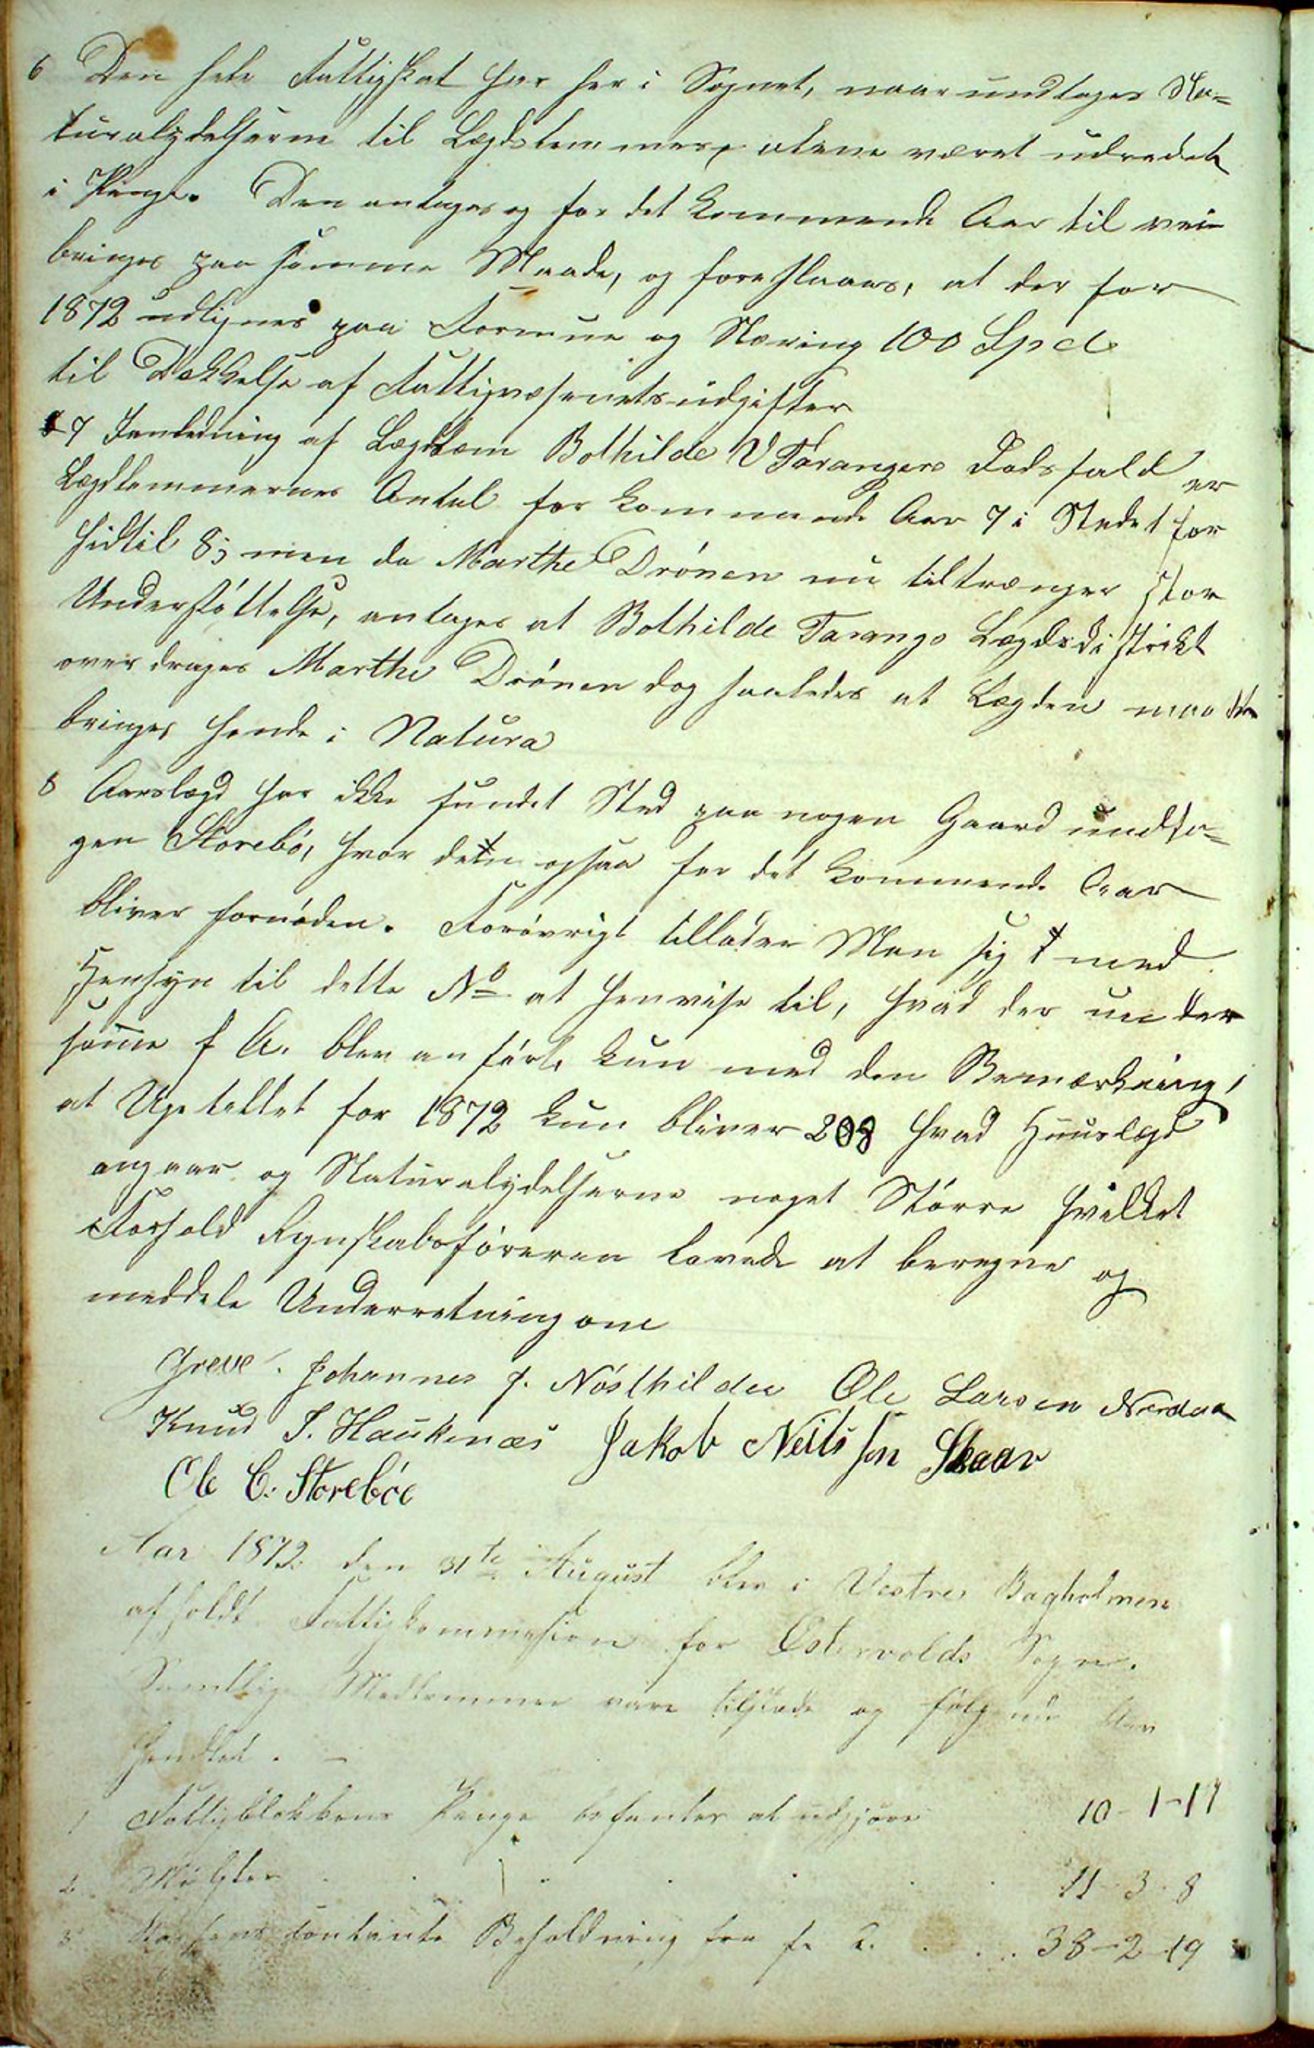 6 Den hele Fattigskat har her i Sognet, naar undtages Na-
turalydelserne til Lægdslemmer, alene været udredet
i Penge. Den antages og for det kommende Aar til veie
bringes paa samme Maade, og foreslaaes, at der for
1872 udlignes paa Formue og Næring 100 Spd
til Dækkelse af Fattigvæsenets udgifter
7 I Anledning af Lægdslem Bothilde V Tarangers Dødsfald er
Lægdslemmernes Antal for kommende Aar 7 i Stedet for
hidtil 8; men da Marthe Drönen nu tiltrænger stor
Understøttelse, antages at Bothilde Tarangs Lægdsdistrikt
overdrages Marthe Drönen dog saaledes at Lægden maa
bringes hende i Natura
8 Aarslægd har ikke fundet Sted paa nogen Gaard undta-
gen Storebö, hvor den ogsaa for det kommende Aar
bliver fornöden. Forövrigt tillader Man sig med
Hensyn til dette No at henvise til, hvad der under
samme f A. blev anført, kun med den Bemærkning,
at Ugetallet for 1872 kun bliver 208 hvad Huuslægd
angaar og Naturalydelserne noget Större hvilket
Forhold Regnskabsføreren lovede at beregne og
meddele Underretning om
Greve. Johannes J. Nösthildee Ole Larsen Nordaa
Knud J. Haukenæs Jakob Neilssen Skaar
Ole C. Storebøe
Aar 1872 den 31te August blev i Vestre Bagholmen
afholdt Fattigkommission for Østervolds Sogn.
Samtlige Medlemmer vare tilstæde og følgende blev
handlet. —
1 Fattigblokkens Penge befantes at udgjøre 10-1-17
2 Mulkter . . . . . . 11-3-8
3 Kassens contante Beholdning fra f. A. . . . 38-2-19